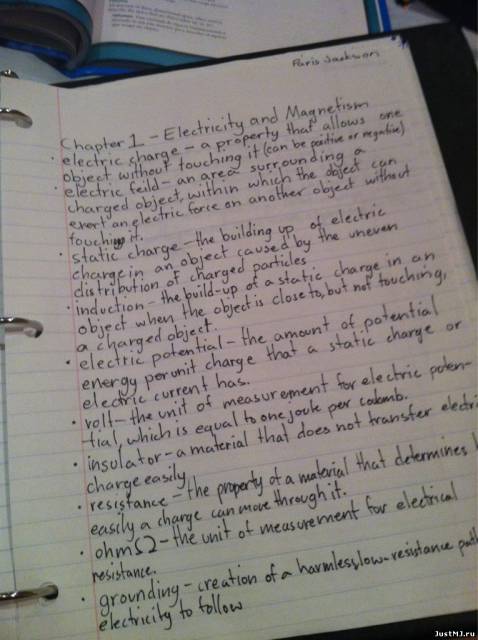 Paris Jackson
Chapter 1 - Electricity and Magnetism
• electric charge - a property that allows one
object without touching it (can be positive or negative)
• electric feild - an area surrounding a
charged object, within which the object can
exert an electric force on another object without
touching it.
• static charge - the building up of electric
charge in an object caused by the uneven
distribution of charged particles
• induction - the build-up of a static charge in an
object when the object is close to, but not touching,
a charged object.
• electric potential - the amount of potential
energy per unit charge that a static charge or
electric current has.
• volt - the unit of measurement for electric poten-
tial which is equal to one joule per coloumb.
• insulator - a material that does not transfer electri
charge easily
• resistance - the property of a material that determines h
easily a charge can move through it.
• ohm Ω - the unit of measurement for electrical
resistance.
• grounding - creation of a harmless, low-resistance path
electricity to follow
JustMJ.ru